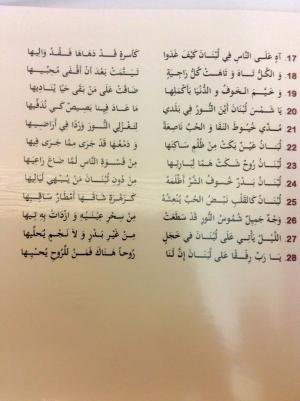 17. آهٍ عَلَى النَّاسِ فِي لُبْنَانَ كَيْفَ غَدَوا كَأُسْرَةٍ قَدْ دَهَاهَا فَقْدُ وَالِيهَا
18. وَ الكُلُّ تَاهَ وَ تَاهَتْ كُلُّ رَاجِيَةٍ تَيَتَّمَتْ بَعْدَ أَنْ أَقْفَى مُحِبِّيهَا
19. وَ خَيَّمَ الخَوفُ وَ الدُّنْيَا بِأَكْمَلِهَا ضَاقَتْ عَلَى مَنْ بَقَى حَيًّا يُنَادِيهَا
20. يَا شَمْسَ لُبْنَانَ أَيْنَ النُّورُ فِي بَلَدِي مَا عَادَ فِينَا بَصِيصٌ كَي نُدَفِّيهَا
21. مُدِّي خُيُوطَ النَّقَا وَ الحُبِّ نَاصِعَةً لِتَغْزِلِي النُّورَ وَرْدًا فِي أَرَاضِيهَا
22. لُبْنَانُ عَينٌ بَكَتْ مِنْ ظُلْمِ سَاكِنِهَا وَ دَمْعُهَا قَدْ جَرَى مِمَّا جَرَى فِيهَا
23. لُبْنَانُ رُوحٌ شَكَتْ هَمًّا لِبَارِئِهَا مِنْ قَسْوَةِ النَّاسِ لَمَّا ضَاعَ رَاعِيهَا
24. لُبْنَانُ بَدْرٌ خُسُوفُ الشَّرِّ أَظْلَمَهُ مِنْ دُونِ لُبْنَانَ مَنْ يُسْهِي لَيَالِيهَا
25. لُبْنَانُ كَالقَلْبِ نَبْضُ الحُبِّ يُنْعِشُهُ كَزَهْرَةٍ شَاقَهَا أَمْطَارُ سَاقِيهَا
26. وَجْهٌ جَمِيلٌ شُمُوسُ النُّورِ قَدْ سَطَعَتْ مِنْ سِحْرِ عَيْنَيْهِ وَ ازْدَادَتْ بِهِ تِيهَا
27. اللَّيْلُ يَأْتِي عَلَى لُبْنَانَ فِي خَجَلٍ مِنْ غَيْرِ بَدْرٍ وَ لَا نَجْمٍ يُحَلِّيهَا
28. يَا رَبِّ رِفْقًا عَلَى لُبْنَانَ إِنَّ لَنَا رُوحاً هُنَاكَ فَمَنْ لِلرُّوحِ يُحْيِيهَا